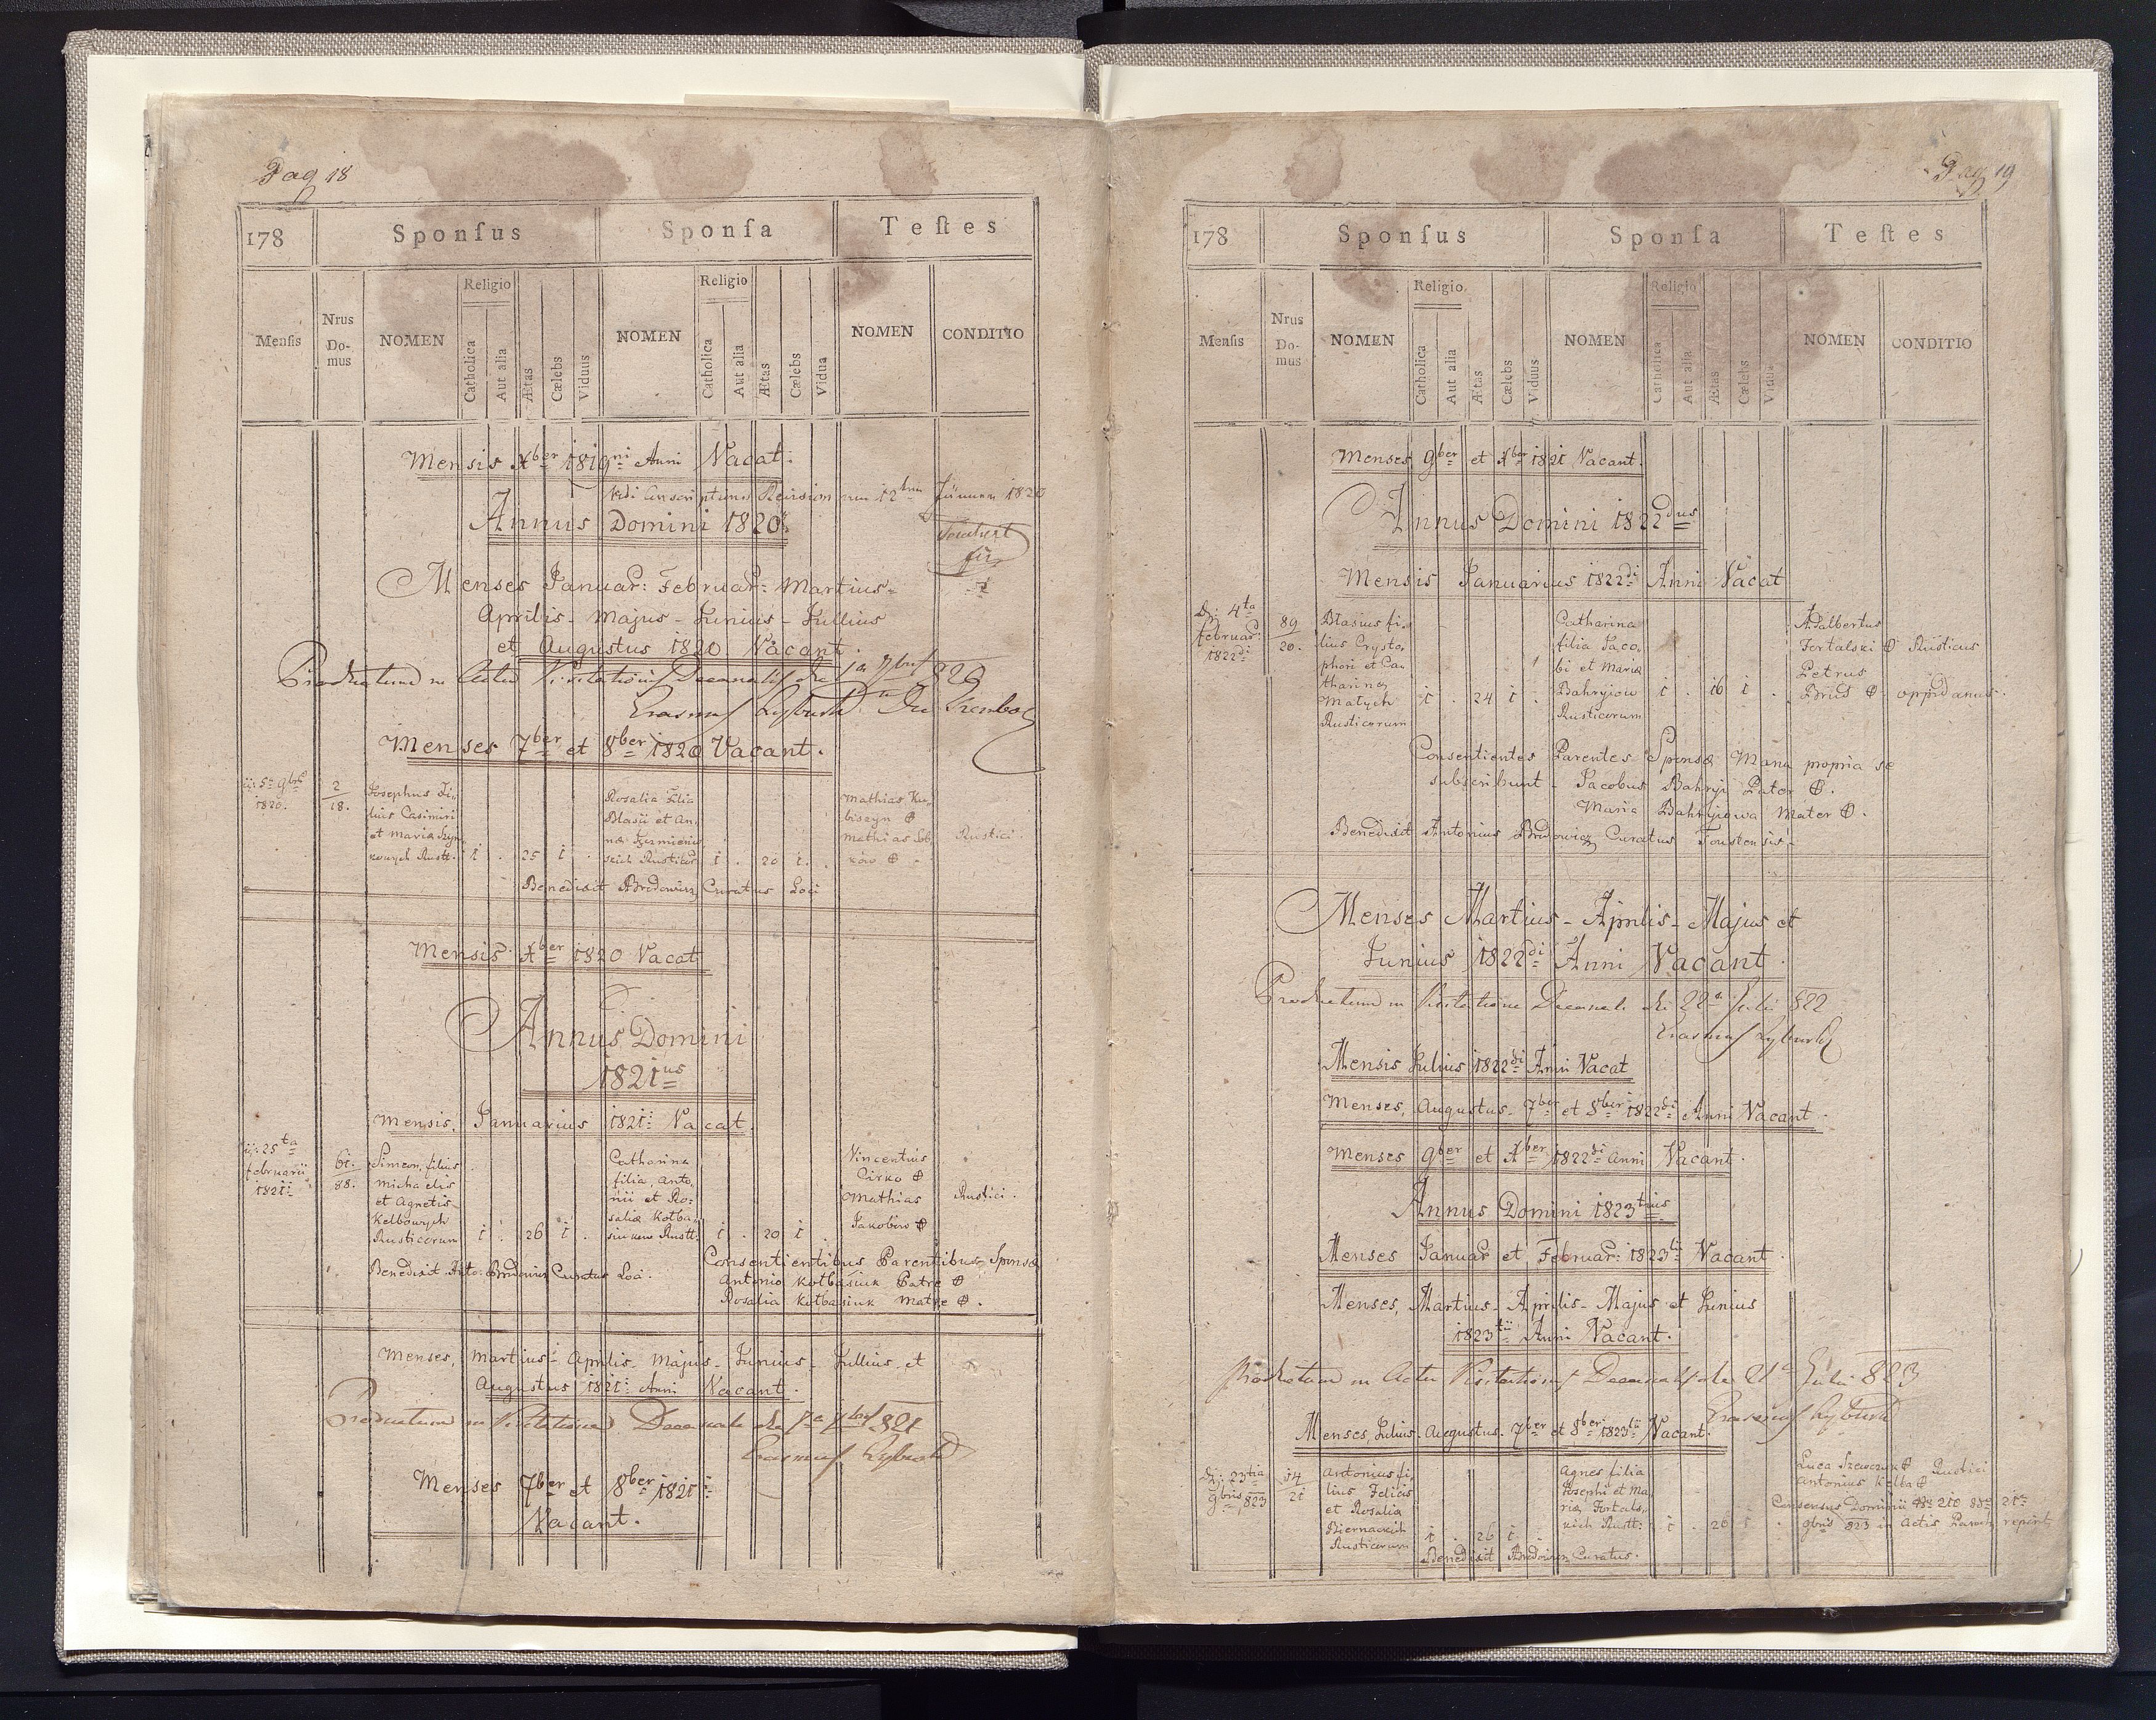 Pag 18
178 Sponſus Sponſa Teſtes
Menſis Nrus Do- mus NOMEN Religio Catholica Aut alia Ætas Cælebs Viduus NOMEN Religio Catholica Aut alia Ætas Cælebs Vidua NOMEN CONDITIO
Mensis Xber 1819ni Anni Vacat.
12
1820
Annus Domini 1820
Menses Januar: Februar: Martius-
Aprilis - Majus - Junius - Jullius
et Augustus 1820 Vacant.
Productum in Visitationis Decanalis 820
Erasmus
Menses 7ber et 8ber 1820 Vacant.
5 9bris
1820.
2
18.
Josephus Fi-
lius Casimiri
et Maria
Rustt. 1 . 25 1 .
Rosalia Filia
Blasii et An-
næ
Rusticor 1 . 20 1 .
Mathias Ku-
biszyn
Mathias
Rustici.
Benedixit Brodowicz Curatus Loci
Mensis Xber 1820 Vacat
Annus Domini
1821us
Mensis Januarius 1821i Vacat.
25ta
februarii
1821i
61.
88.
Simeon, filius
Michaelis
et Agnetis
Kelbowych
Rusticorum 1 . 26 1 .
Catharina
filia, Anto-
nii et Ro-
saliæ Kotba-
siukow Rustt: 1 . 20 1
Vincentius
Cirko
Mathias
Jakobow
Rustici.
Benedixit Anto: Brodowicz Curatus Loci.
Consentientibus Parentibus Sponsæ
Antonio Kotbasiuk Patre
Rosalia Kotbasiuk Matre
Menses, Martius - Aprilis - Majus - Junius - Jullius, et
Augustus 1821i Anni Vacant.
Productum in Visitatione Decanali 821
Erasmus
Menses 7ber et 8ber 1821i
Vacant.
Pag 19
178 Sponſus Sponſa Teſtes
Menſis Nrus Do- mus NOMEN Religio Catholica Aut alia Ætas Cælebs Viduus NOMEN Religio Catholica Aut alia Ætas Cælebs Vidua NOMEN CONDITIO
Menses 9ber et Xber 1821 Vacant.
Annus Domini 1822dus
Mensis Januarius 1822di Anni Vacat
4ta
februar:
1822di
89
20.
Blasius fi-
lius Crysto-
phori et Ca-
tharinæ
Matych
Rusticorum 1 . 24 1 .
Catharina
filia Jaco-
bi et Mariæ
Bahryiow
Rusticorum 1 . 16 1 .
Adalbertus
Fortalski Rusticus
Petrus
Brud oppidanus.
Consentientes Parentes Sponsæ Manu propria se
subscribunt - Jacobus Bahryi Pater
Maria Bahryiowa Mater
Benedixit Antonius Brodowicz Curatus Toustensis
Menses Martius - Aprilis - Majus et
Junius 1822di Anni Vacant.
Productum in Visitatione Decanali die 22a Julii 822
Erasmus
Mensis Julius 1822di Anni Vacat
Menses, Augustus - 7ber et 8ber 1822di Anni Vacant.
Menses 9ber et Xber 1822di Anni Vacant.
Annus Domini 1823tius
Menses Januar et Februar: 1823tii Vacant.
Menses, Martius - Aprilis - Majus et Junius
1823tii Anni Vacant.
Productum in Actu Visitationis Decanalis die 21a Julii 823
Erasmus
Menses, Julius - Augustus - 7ber et 8ber 1823tii Vacant.
23tia
9bris 823
14
21
Antonius fi-
lius Felicis
et Rosaliæ
Biernackich
Rusticorum 1 . 26 1 .
Agnes filia
Josephi et Ma-
riæ Fortals-
kich Rustt: 1 . 26 1 .
Luca Szewczyk
Antonius Kelba
Rustici
Consensus Dominii 210 21
9bris 823 in Actis
Benedixit Brodowicz Curatus.